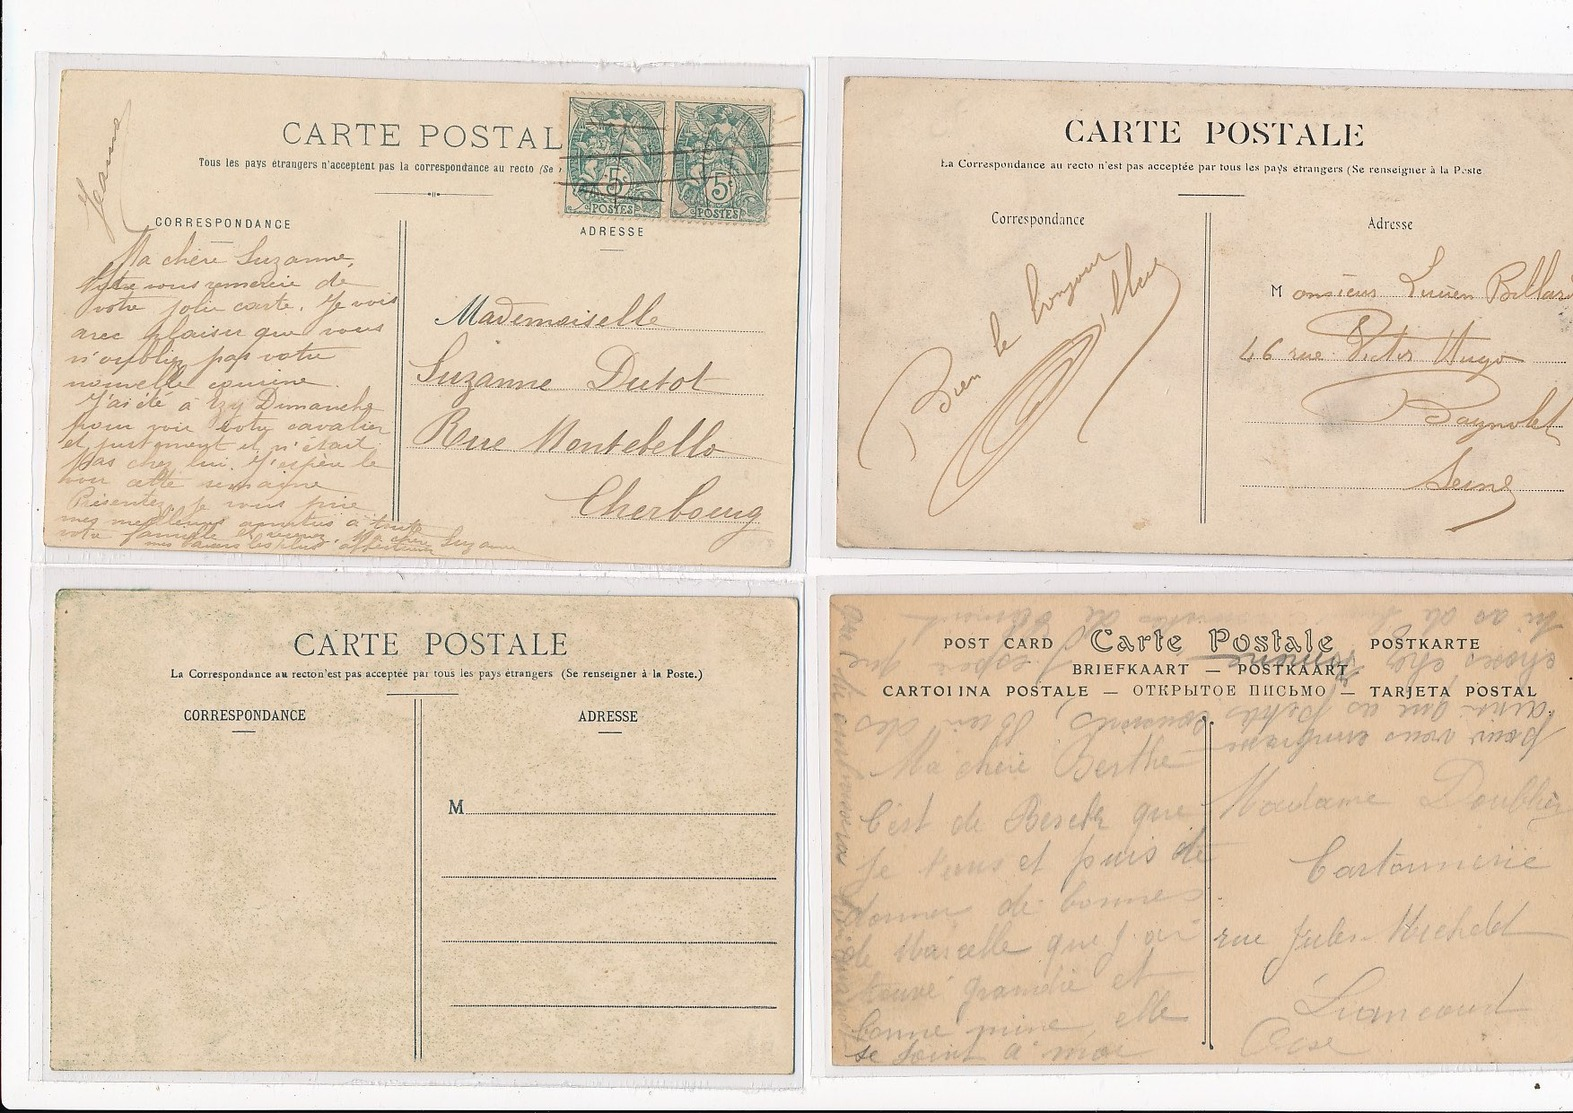 Jeanne
CARTE POSTAL
Tous les pays étrangers n'acceptent pas la correspondance au recto (Se
CORRESPONDANCE
ADRESSE
5c
POSTES
5c
POSTES
Ma chère Suzanne,
vous remercie de
votre jolie carte. Je vois
avec plaisir que vous
n'oubliez pas votre
nouvelle cousine.
J'ai été à Ezy Dimanche
pour voir votre cavalier
et justement il n'était
pas chez lui. J'espère le
voir cette semaine
Présentez, je vous prie
mes meilleures amitiés à toute
votre famille et recevez, Ma chère Suzanne
mes baisers les plus affectueux
Mademoiselle
Suzanne Dutot
Rue Montebello
Cherbourg
CARTE POSTALE
La Correspondance au recto n'est pas acceptée par tous les pays étrangers (Se renseigner à la Poste
Correspondance
Adresse
Bien le bonjour
Monsieur Lucien Billard
46 rue Victor Hugo
Bagnolet
Seine
CARTE POSTALE
La Correspondance au recto n'est pas acceptée par tous les pays étrangers (Se renseigner à la Poste.)
CORRESPONDANCE
ADRESSE
M
POST CARD Carte Postale POSTKARTE
BRIEFKAART — POSTKAART
CARTOLINA POSTALE — ОТКРЫТОЕ ПИСЬМО — TARJETA POSTAL
Ma chère Berthe
C'est de que
je viens et puis te
donner de bonnes
de Marcelle que j'ai
trouvé grandie et
bonne mine, elle
se joint à moi
pour vous embrasser
ainsi que
choses chez
Madame Doublier
Cartonnerie
rue Jules Michelet
Liancourt
Oise